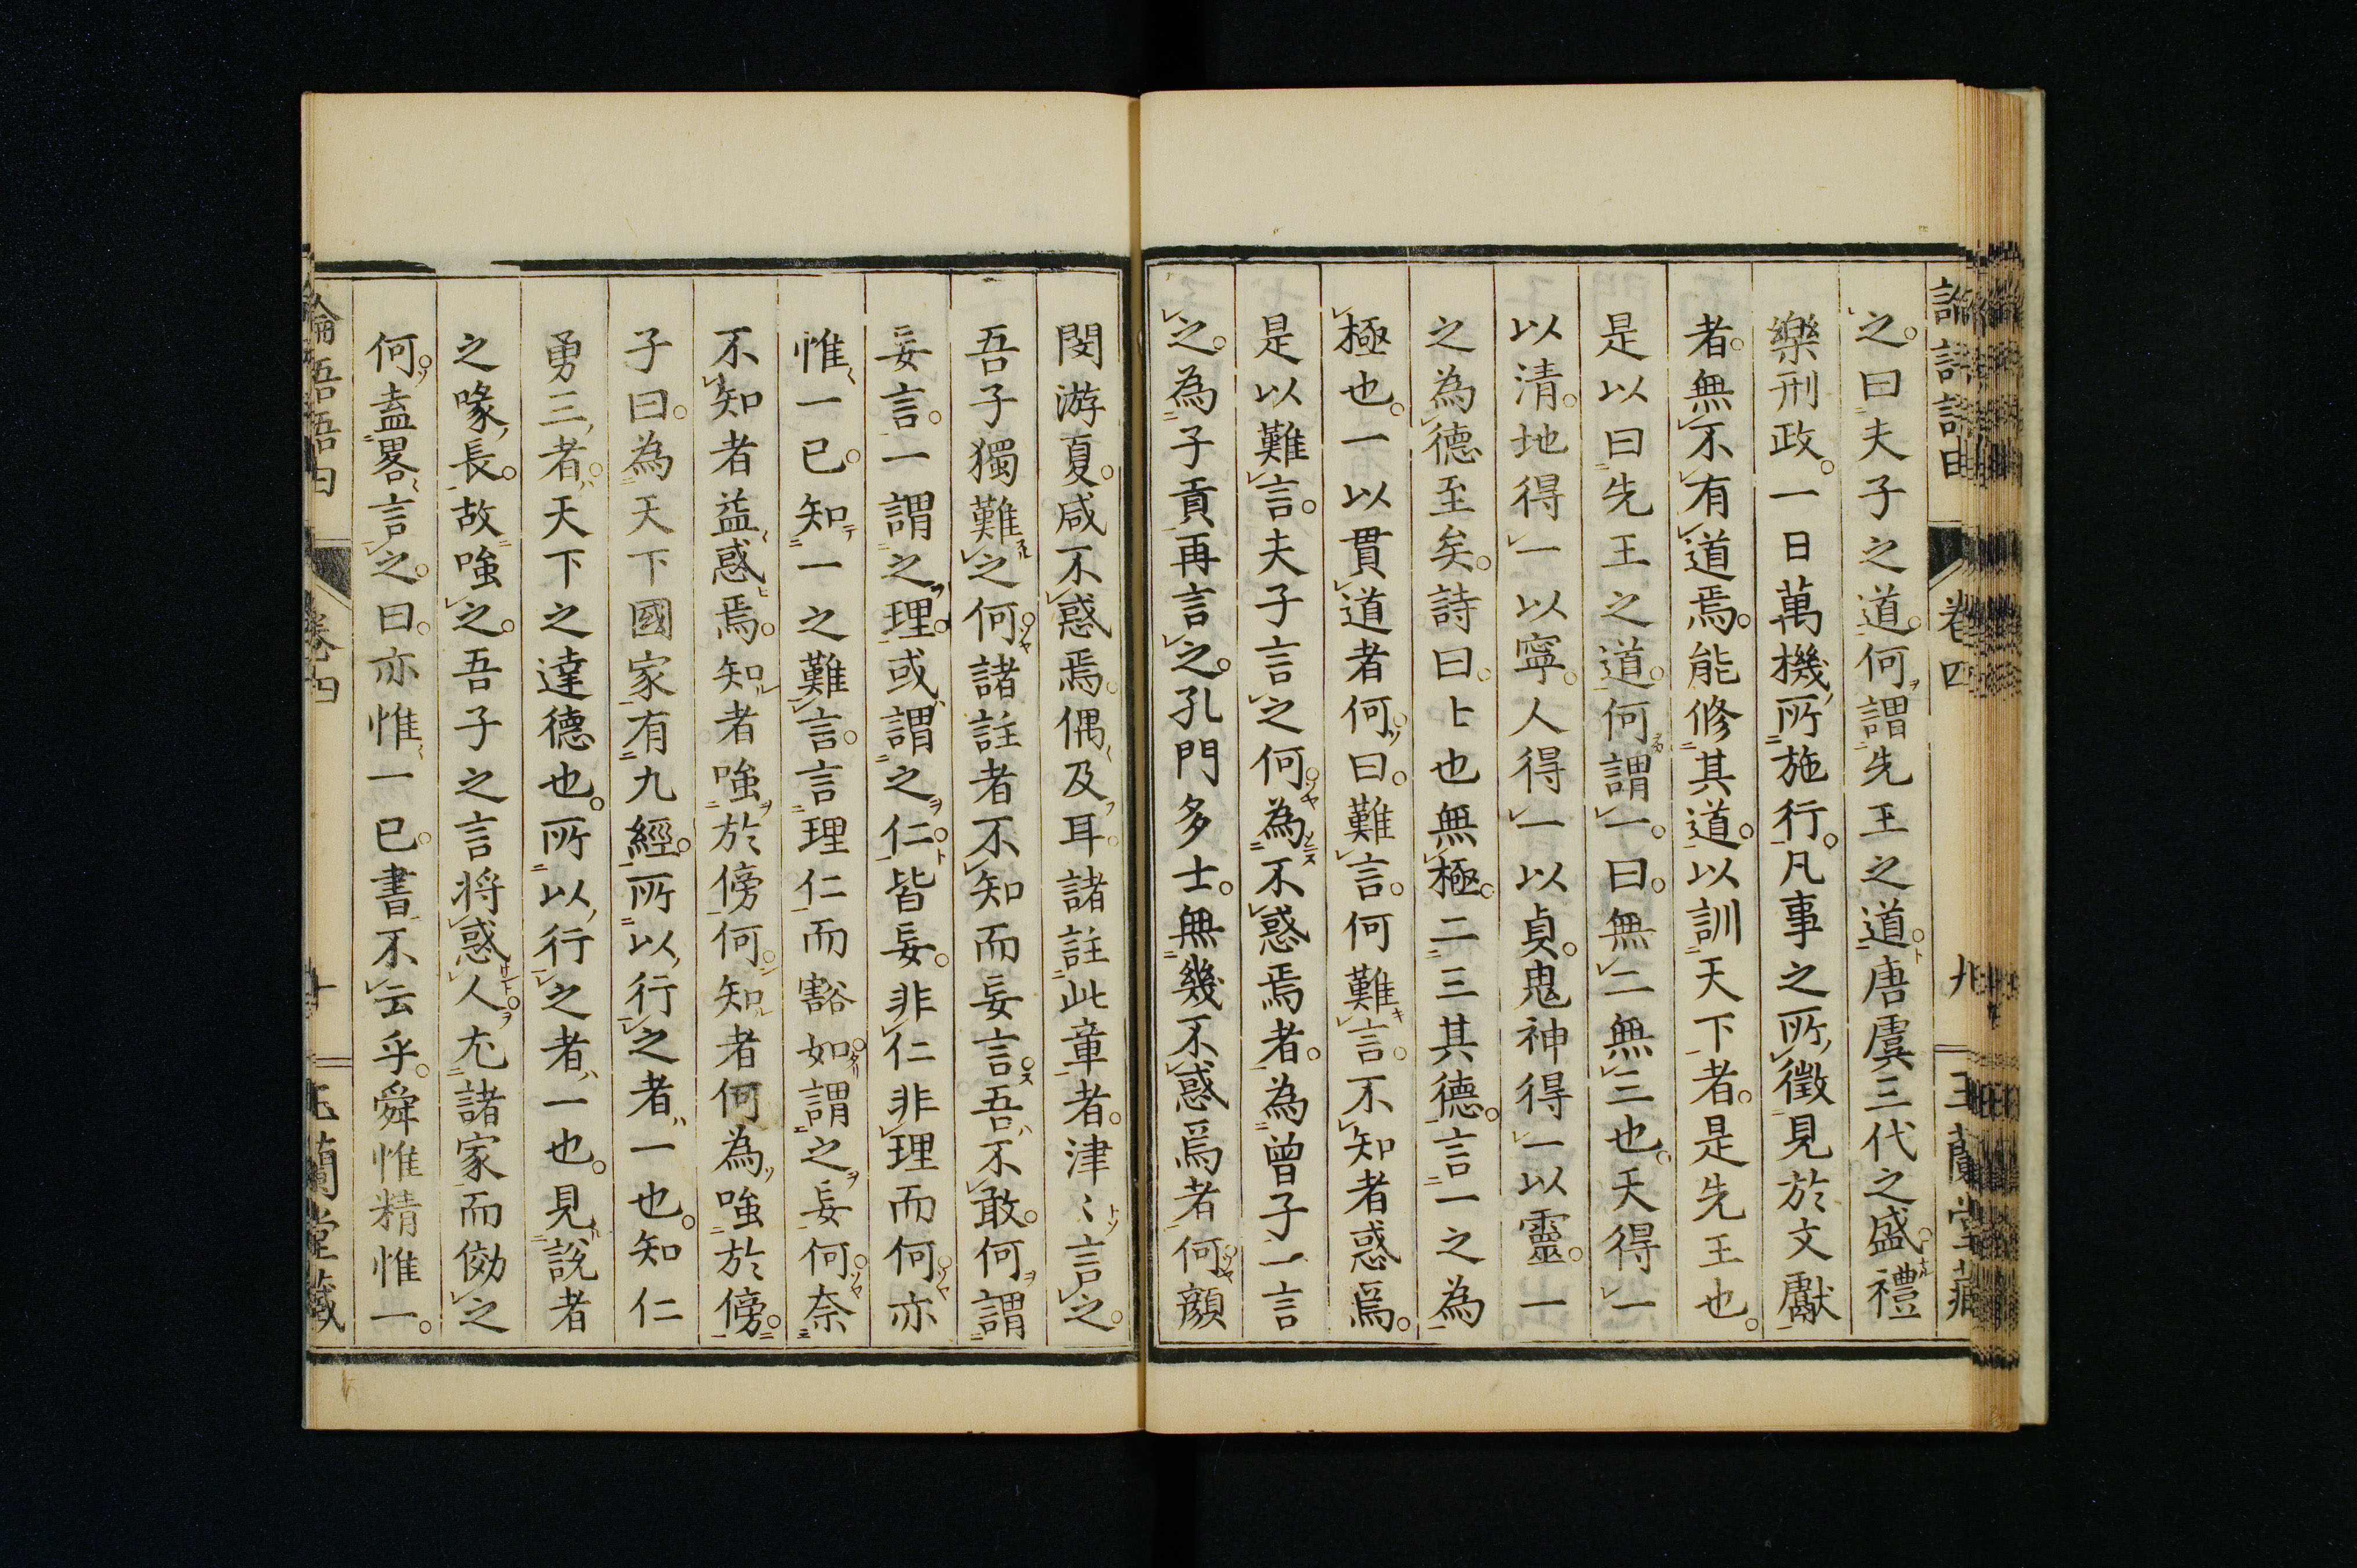 之。曰夫子之道。何謂先王之道。唐虞三代之盛。禮
樂刑政。一日萬機所施行。凡事之所徵見於文獻
者。無不有道焉。能修其道。以訓天下者。是先王也。
是以曰先王之道。何謂一。曰。無二無三也。天得一
以清。地得一以寧。人得一以貞。鬼神得一以靈。一
之為德至矣。詩曰。上也無極。二三其德。言一之為
極也。一以貫道者何。曰。難言。何難言。不知者惑焉。
是以難言。夫子言之何為不惑焉者。為曾子一言
之。為子貢再言之。孔門多士。無幾不惑焉者何。顏
閔游夏。咸不惑焉。偶及耳。諸註此章者。津〻言之。
吾子獨難之何。諸註者不知而妄言。吾不敢。何謂
妄言。一謂之理。或謂之仁。皆妄。非仁非理而何。亦
惟一已。知一之難言。言理仁而豁如。謂之妄何奈
不知者益惑焉。知者嗤於傍何。知者何為嗤於傍。
子曰。為天下國家有九經。所以行之者一也。知仁
勇三者。天下之達德也。所以行之者一也。見說者
之喙長。故嗤之。吾子之言將惑人。尤諸家而傚之
何。盍畧言之。曰。亦惟一已。書不云乎。舜惟精惟一。
卷四
九
論語語由
卷四
十
玉蘭堂藏